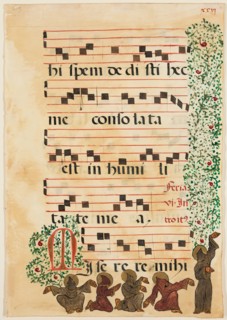 xcvi
hi spem de di sti hec
me conso la ta
est in humi li
Feria
vi. Int
troit⁹
ta te me a.
M i se re re mihi